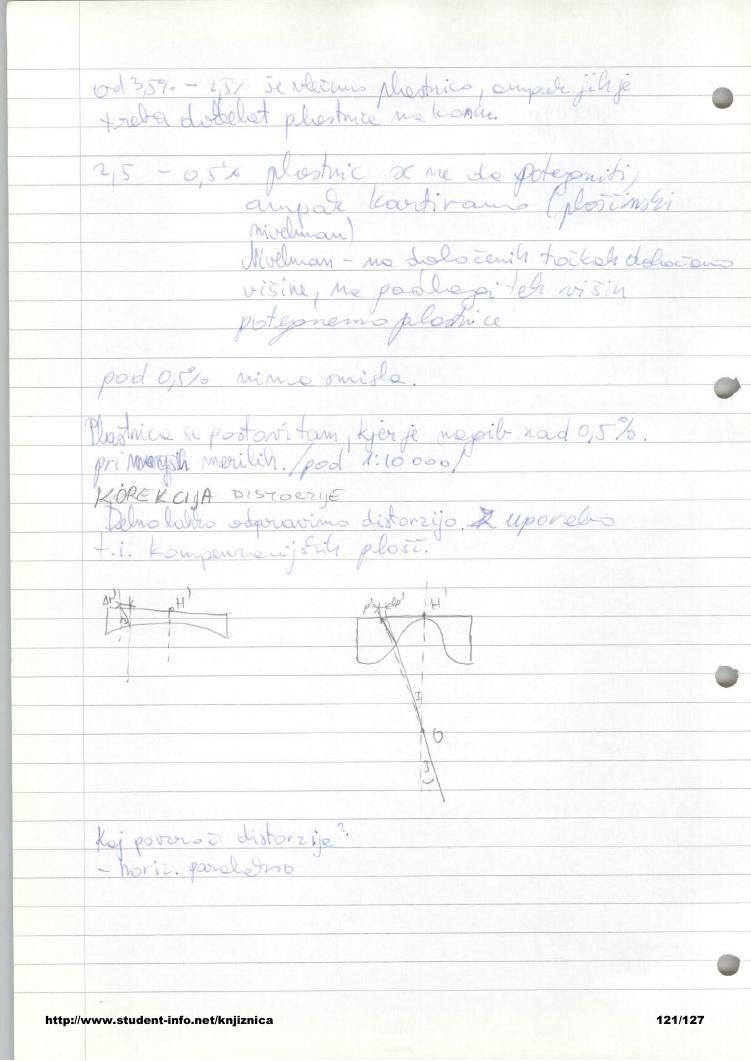 od 3,5% – 2,5% še vlečemo plastnice, ampak jih je
treba dotolat plastnice na koncu.
2,5 – 0,5% plastnic se ne da potegniti,
ampak kartiramo (ploščinski
nivelman)
Nivelman – na določenih točkah določamo
višine, na podlagi teh višin
potegnemo plastnice
pod 0,5% nima smisla.
Plastnica se postavi tam, kjer je nagib nad 0,5%.
pri manjših merilih. /pod 1:10 000/
KOREKCIJA DISTORZIJE
Delno lahko odpravimo distorzijo. Z uporabo
t.i. kompenzacijskih plošč.
Δr' H' H'
O
Kaj povzroči distorzije?
– horiz. paralakso
http://www.student-info.net/knjiznica 121/127